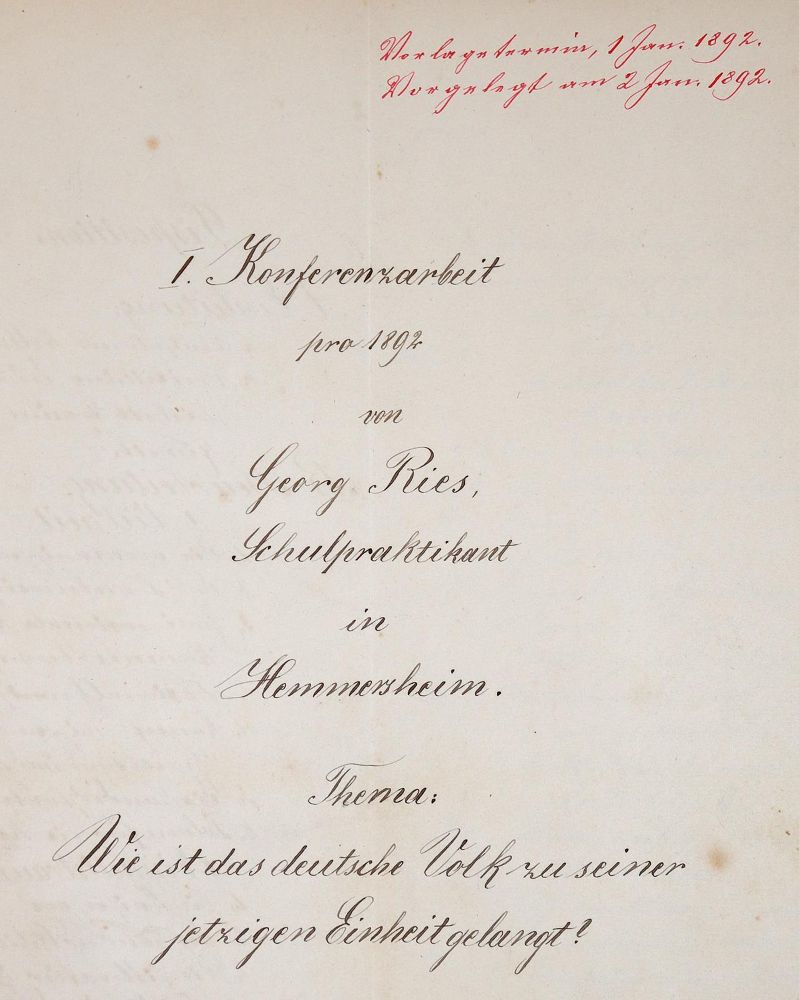 Vorlagetermin, 1 Jan. 1892.
Vorgelegt am 2 Jan. 1892.
I. Konferenzarbeit
pro 1892
von
Georg Ries,
Schulpraktikant
in
Hemmersheim.
Thema:
Wie ist das deutsche Volk zu seiner
jetzigen Einheit gelangt?